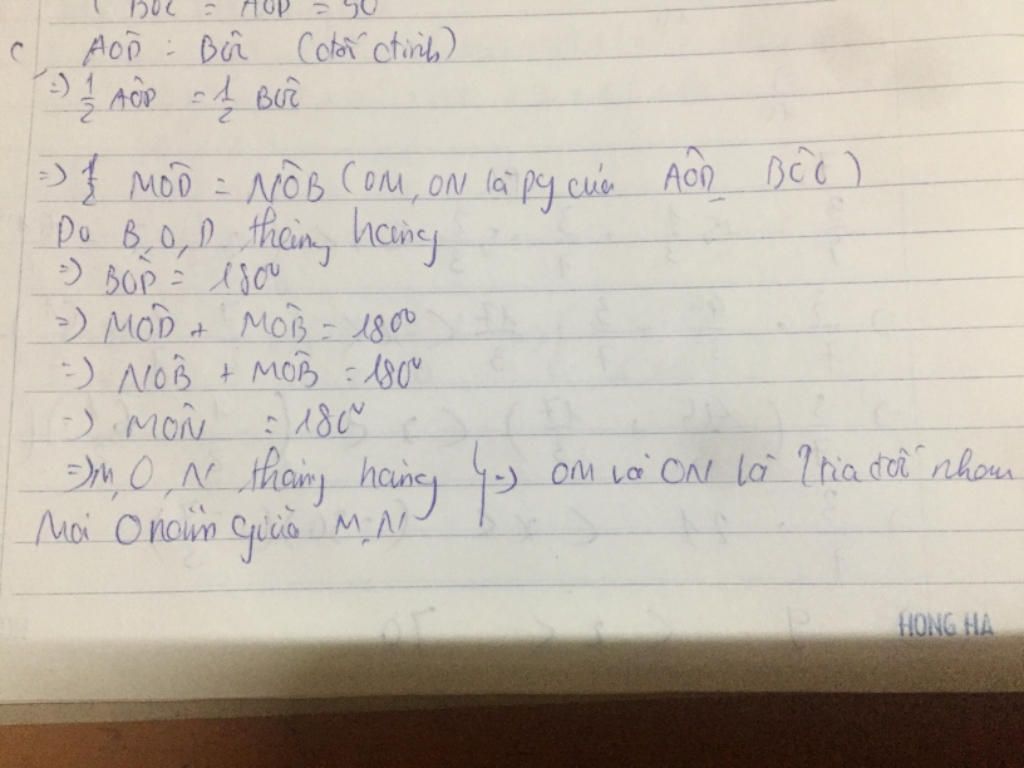 BOC = AOD = 50
c, AÔD = BÔC (đối đỉnh)
=> 1/2 AÔD = 1/2 BÔC
=> MÔD = NÔB (OM, ON là pg của AÔD BÔC)
Do B, O, D thẳng hàng
=> BÔD = 180°
=> MÔD + MÔB = 180°
=> NÔB + MÔB = 180°
=> MÔN = 180°
=> M, O, N thẳng hàng } => OM và ON là 2 tia đối nhau
Mà O nằm giữa M, N
HONG HA